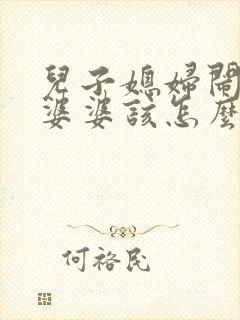 兒子媳婦鬧
婆婆該怎麼
何裕民